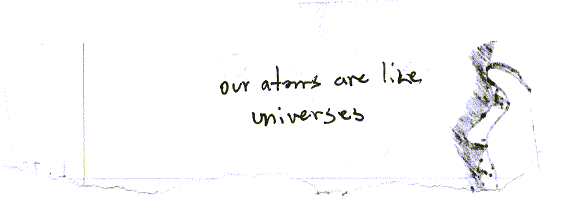 our atoms are like
universes